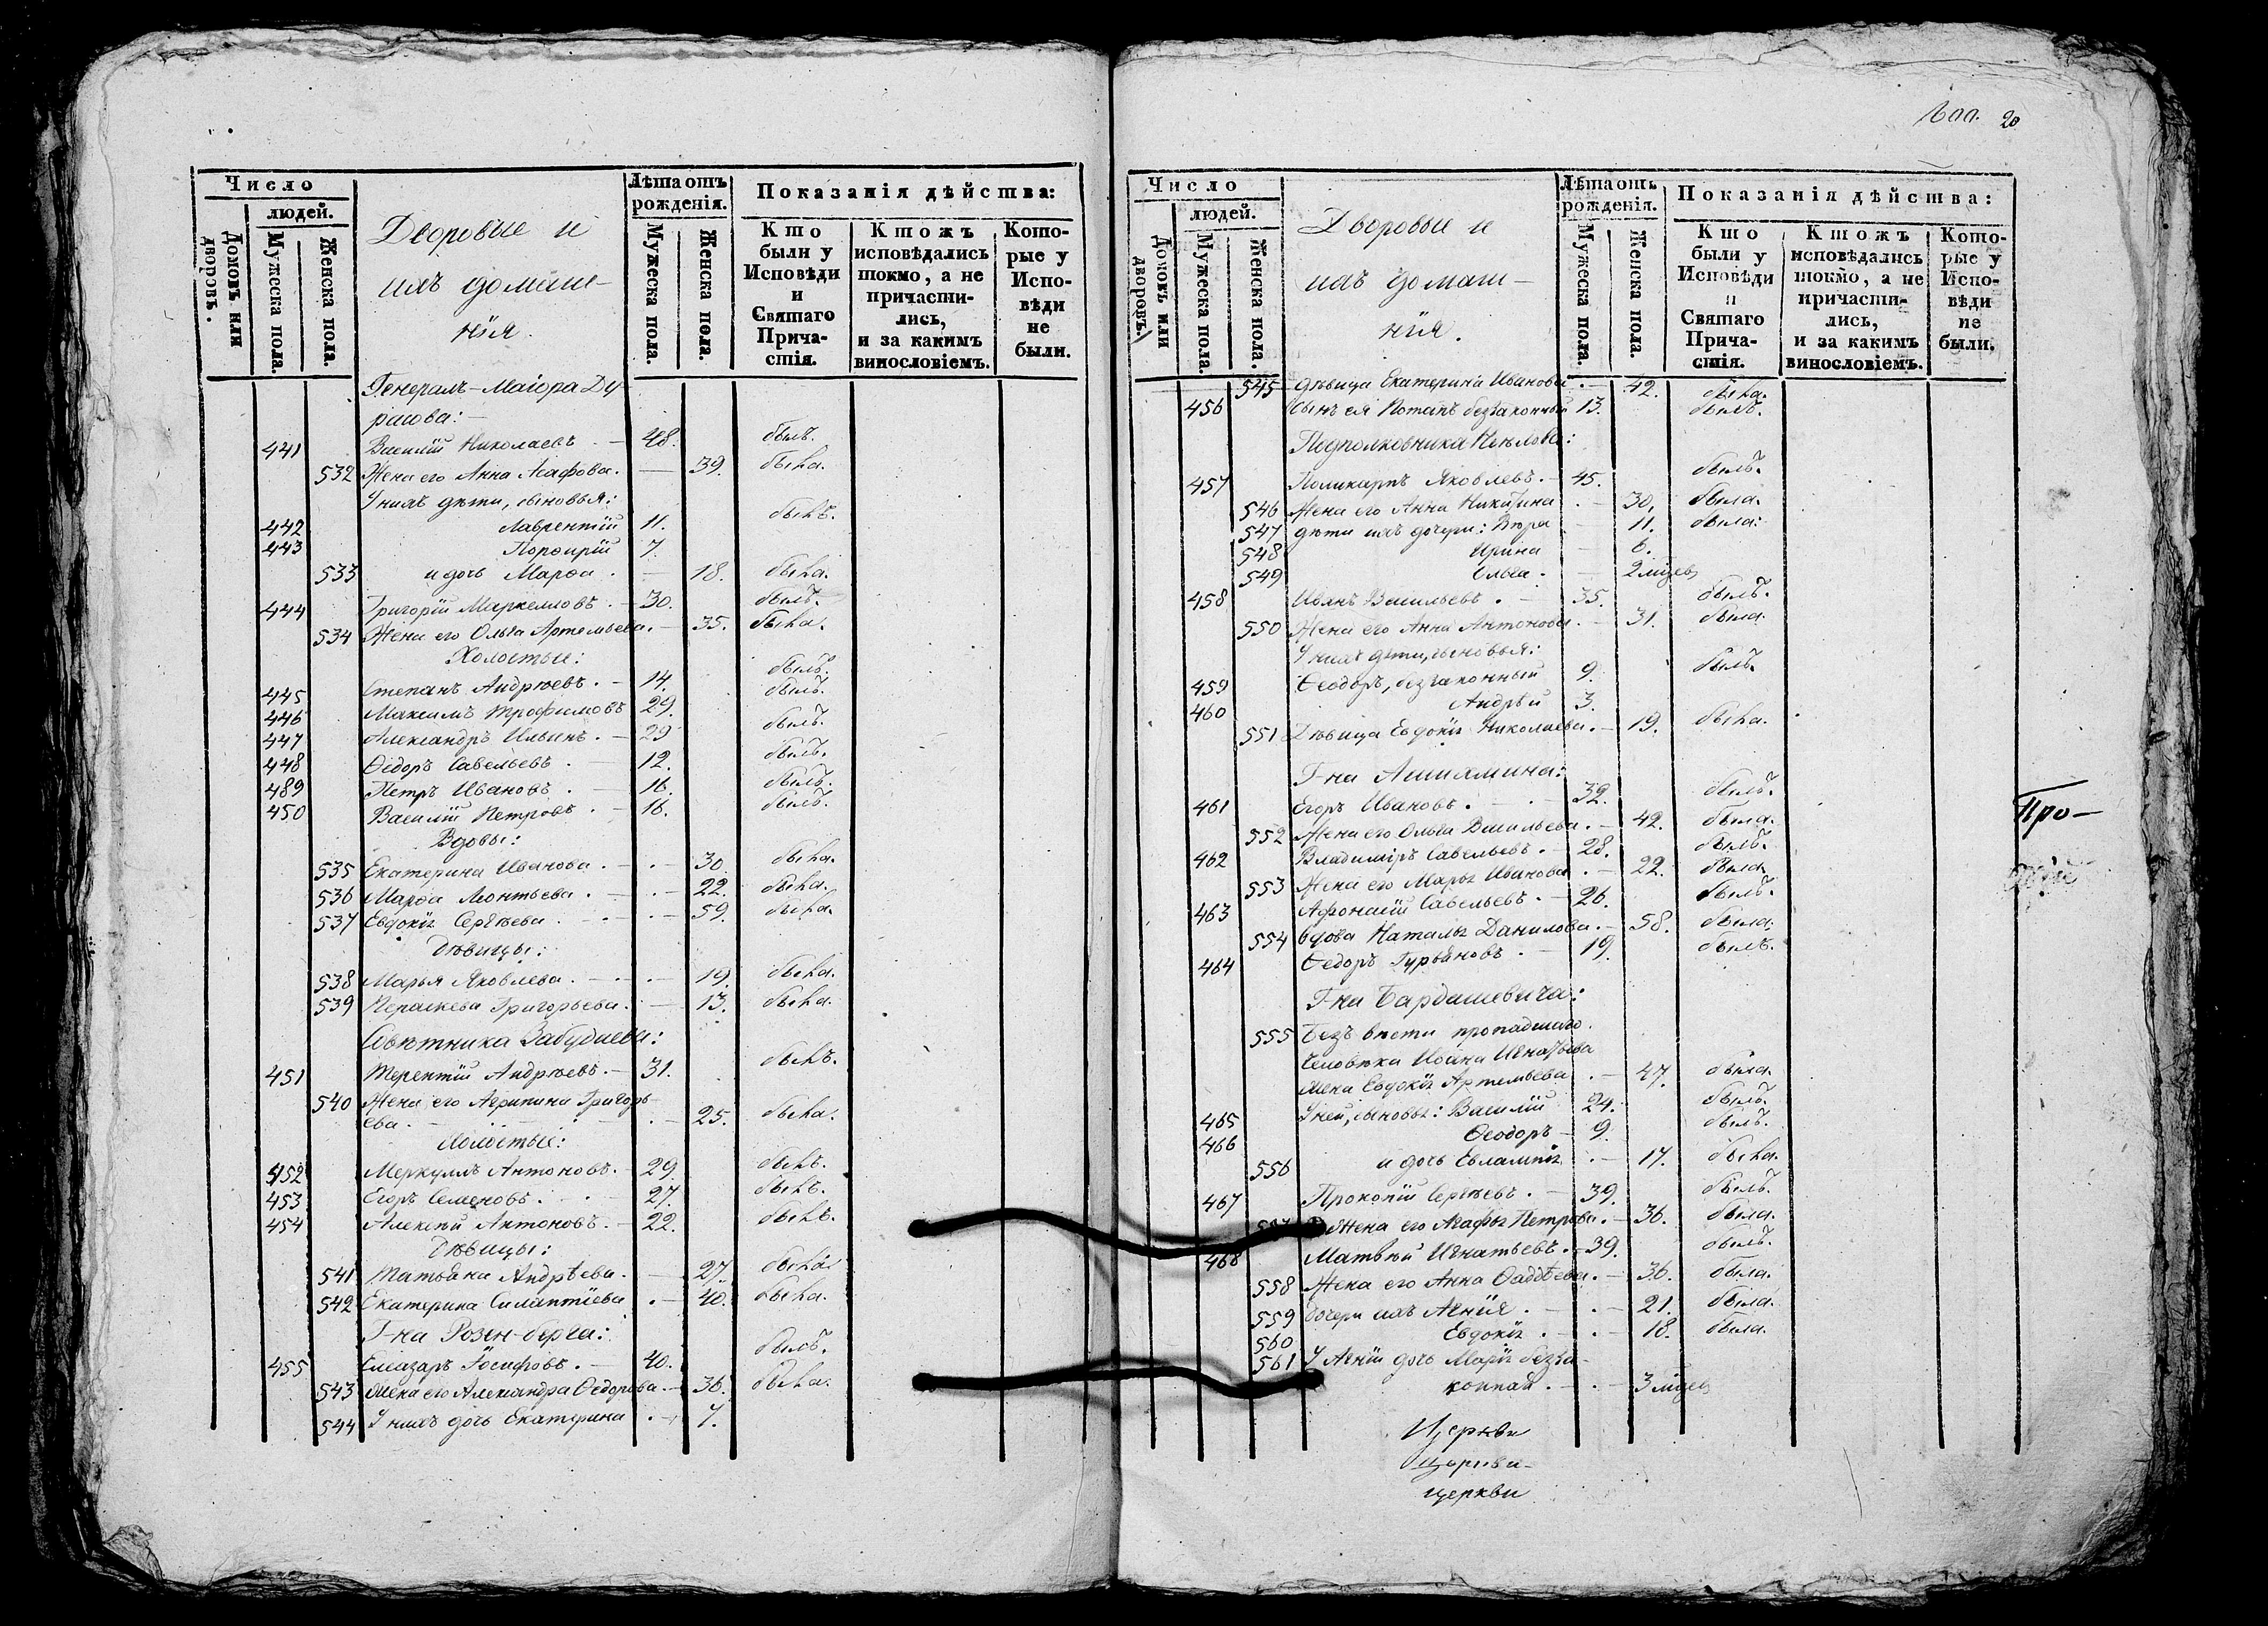 Число
людей.
Домовъ или дворовъ.
Мужеска пола.
Женска пола.
Дворовые и
ихъ домаш-
нія.
Лѣта отъ рожденія.
Мужеска пола.
Женска пола.
Показанія дѣйства:
Кто были у Исповѣди и Святаго Прича- стія.
Ктожъ исповѣдались токмо, а не причасти- лись, и за какимъ винословіемъ.
Кото- рые у Испо- вѣди не были.
Генералъ-Маіора Ду-
расова:
441 Василій Николаевъ. 48. былъ.
532 Жена его Анна Асафова. 39. была.
У нихъ дѣти, сыновья:
442 Лаврентій 11. былъ.
443 Порфирій 7.
533 и дочь Марѳа. 18. была.
444 Григорій Маркелловъ. 30. былъ.
534 Жена его Ольга Артемьева. 35. была.
Холостые:
445 Степанъ Андрѣевъ. 14. былъ.
446 Максимъ Трофимовъ 29. былъ.
447 Александръ Ильинъ. 29 былъ.
448 Ѳедоръ Савельевъ. 12. былъ.
489 Петръ Ивановъ. 16. былъ.
450 Василій Петровъ. 16. былъ.
Вдовы:
535 Екатерина Иванова. 30. была.
536 Марѳа Леонтьева. 22. была.
537 Евдокія Сергѣева. 59. была.
Дѣвицы:
538 Марья Яковлева. 19. была.
539 Параскева Григорьева. 13. была.
Совѣтника
451 Терентій Андрѣевъ. 31. былъ.
540 Жена его Агрипина Григорь-
ева. 25. была.
Холостые:
452 Меркулъ Антоновъ. 29 былъ.
453 Егоръ Семеновъ. 27. былъ.
454 Алексѣй Антоновъ. 22. былъ.
Дѣвицы:
541 Татьяна Андрѣева. 27. была
542 Екатерина Силантіева. 40. была.
Г-на Розен-берга:
455 Елеазаръ Іосифовъ. 40. былъ.
543 Жена его Александра Ѳедорова. 36. была.
544 У нихъ дочь Екатерина. 7.
20
Число
людей.
Домовъ или дворовъ.
Мужеска пола.
Женска пола.
Дворовые и
ихъ домаш-
нія.
Лѣта отъ рожденія.
Мужеска пола.
Женска пола.
Показанія дѣйства:
Кто были у Исповѣди и Святаго Прича- стія.
Ктожъ исповѣдались токмо, а не причасти- лись, и за какимъ винословіемъ.
Кото- рые у Испо- вѣди не были.
545 дѣвица Екатерина Иванова. 42. была.
456 Сынъ ея Потапъ беззаконный 13. былъ.
Подполковника Неѣлова:
457 Поликарпъ Яковлевъ. 45. былъ.
546 Жена его Анна Никитина. 30. была.
547 дѣти ихъ дочери: Вѣра 11. была.
548 Ирина 6.
549 Ольга. 2 мѣсец
458 Иванъ Васильевъ. 35. былъ.
550 Жена его Анна Антонова. 31. была.
У нихъ дѣти, сыновья:
459 Ѳеодоръ, беззаконный 9. былъ.
460 Андрѣй 3.
551 Дѣвица Евдокія Николаева. 19. была.
Г-на
461 Егоръ Ивановъ. 32. былъ.
552 Жена его Ольга Васильева. 42. была.
462 Владиміръ Савельевъ. 28. былъ.
553 Жена его Марья Иванова. 22. была.
463 Афонасій Савельевъ. 26. былъ.
554 Вдова Наталья Данилова. 58. была.
464 Ѳедоръ Гурьяновъ. 19. былъ.
Г-на Бардашевича:
555 Безъ вѣсти пропадшаго
человѣка Иоана Игнатьева
жена Евдокія Артемьева. 47. была.
465 У ней, сыновья: Василій 24. былъ.
466 Ѳеодоръ 9. былъ.
556 и дочь Евлампія. 17. была.
467 Прокопій Сергѣевъ. 39. былъ.
Жена его Агафья Петрова. 36. была.
468 Матвѣй Игнатьевъ. 39. былъ.
558 Жена его Анна Ѳаддѣева. 36. была.
559 Дочери ихъ Агнія. 21. была.
560 Евдокія. 18. была.
561 У Агніи дочь Марія безза-
конная. 3 мѣсец
Церкви
церкви
Про-